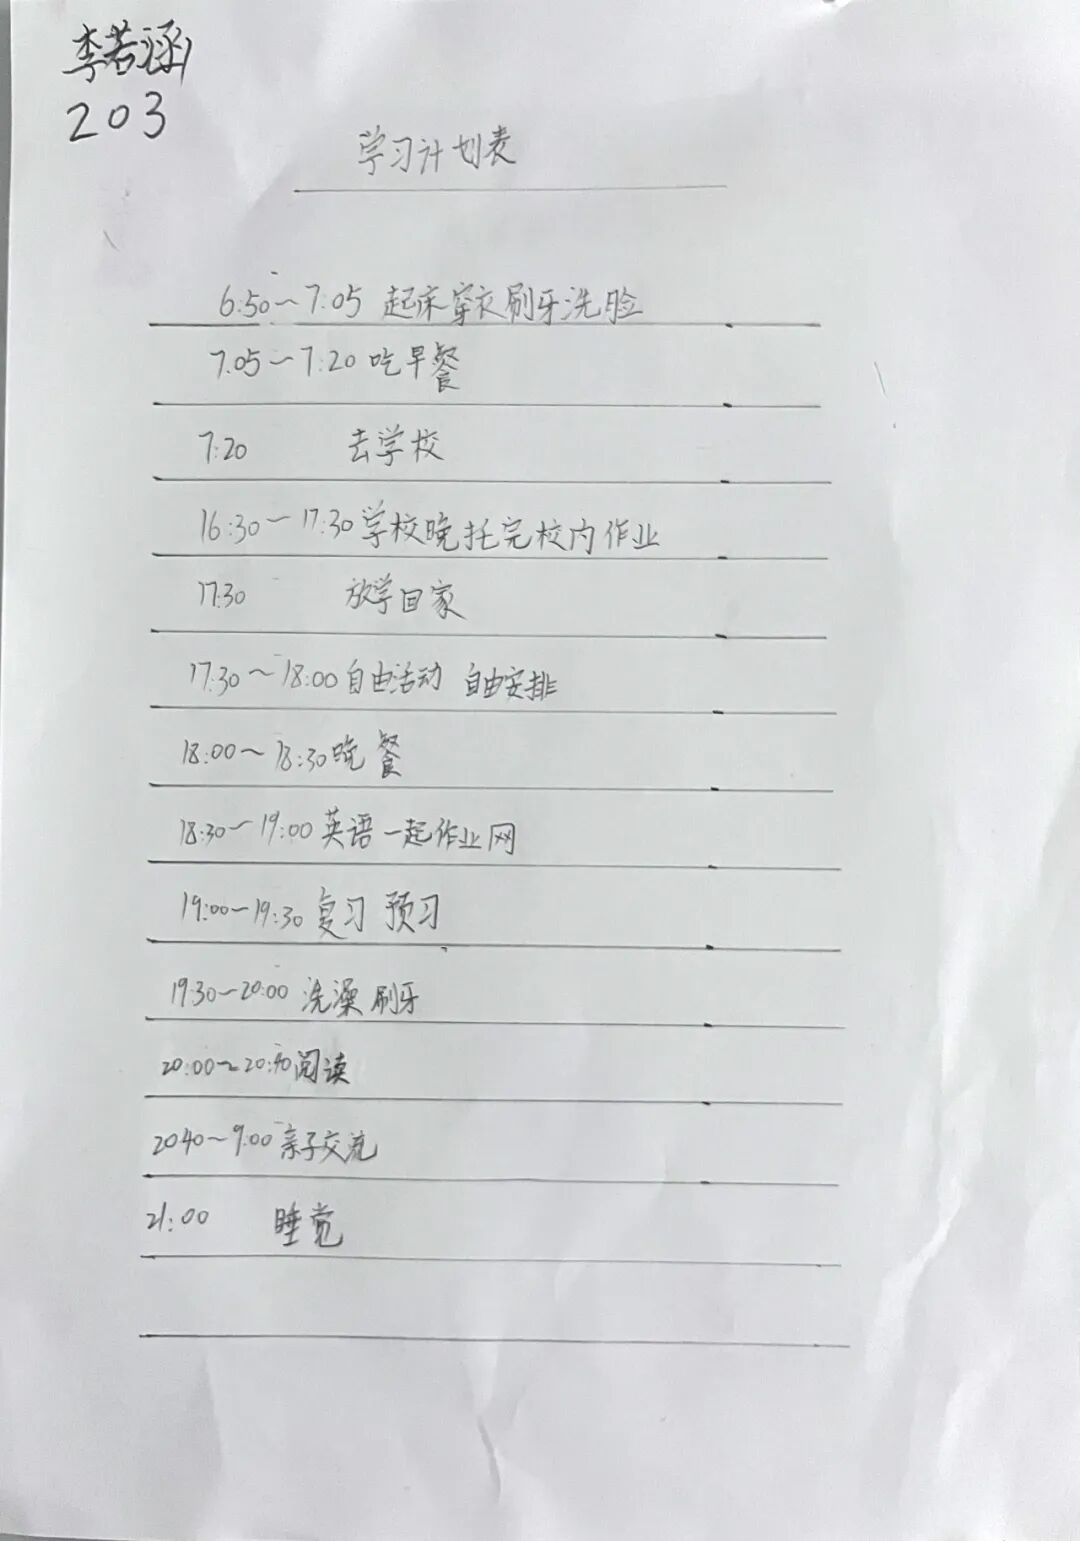 李若涵
203
学习计划表
6:50～7:05 起床穿衣刷牙洗脸
7.05～7:20 吃早餐
7:20 去学校
16:30～17:30 学校晚托完校内作业
17.30 放学回家
17.30～18:00 自由活动 自由安排
18:00～18:30 晚餐
18:30～19:00 英语一起作业网
19:00～19:30 复习 预习
19:30～20:00 洗澡 刷牙
20:00～20:40 阅读
2040～9:00 亲子交流
21:00 睡觉